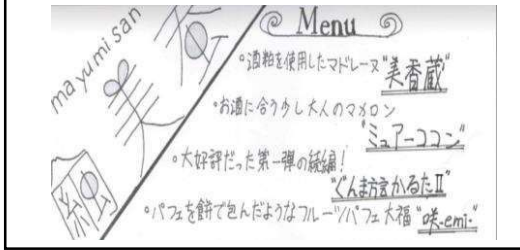 mayumisan
繭美蚕
Menu
°酒粕を使用したマドレーヌ"美香蔵"
°お酒に合う少し大人のマカロン
"ミュアーココン"
°大好評だった第一弾の続編!
"ぐんま方言かるたⅡ"
°パフェを餅で包んだようなフルーツパフェ大福"咲-emi-"